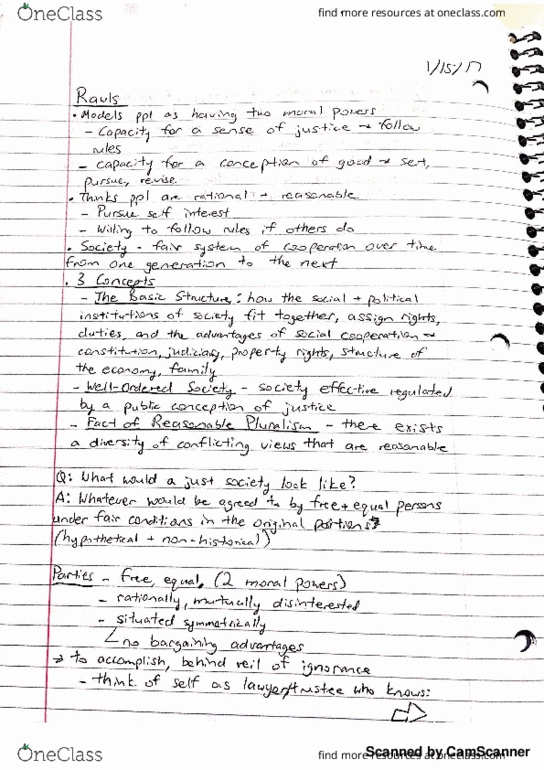 OneClass
find more resources at oneclass.com
1/15/17
Rawls
• Models ppl as having two moral powers
- Capacity for a sense of justice → follow
rules
- capacity for a conception of good → set,
pursue, revise
• Thinks ppl are rational + reasonable
- Pursue self interest
- Willing to follow rules if others do
• Society - fair system of cooperation over time
from one generation to the next
• 3 Concepts
- The Basic Structure: how the social + political
institutions of society fit together, assign rights,
duties, and the advantages of social cooperation →
constitution, judiciary, property rights, structure of
the economy, family
- Well-Ordered Society - society effective regulated
by a public conception of justice
- Fact of Reasonable Pluralism - there exists
a diversity of conflicting views that are reasonable
Q: What would a just society look like?
A: Whatever would be agreed to by free + equal persons
under fair conditions in the original
(hypothetical + non-historical)
Parties - free, equal, (2 moral powers)
- rationally, mutually disinterested
- situated symmetrically
no bargaining advantages
→ to accomplish, behind veil of ignorance
- think of self as lawyer/trustee who knows:
OneClass
find more resources at oneclass.com
Scanned by CamScanner